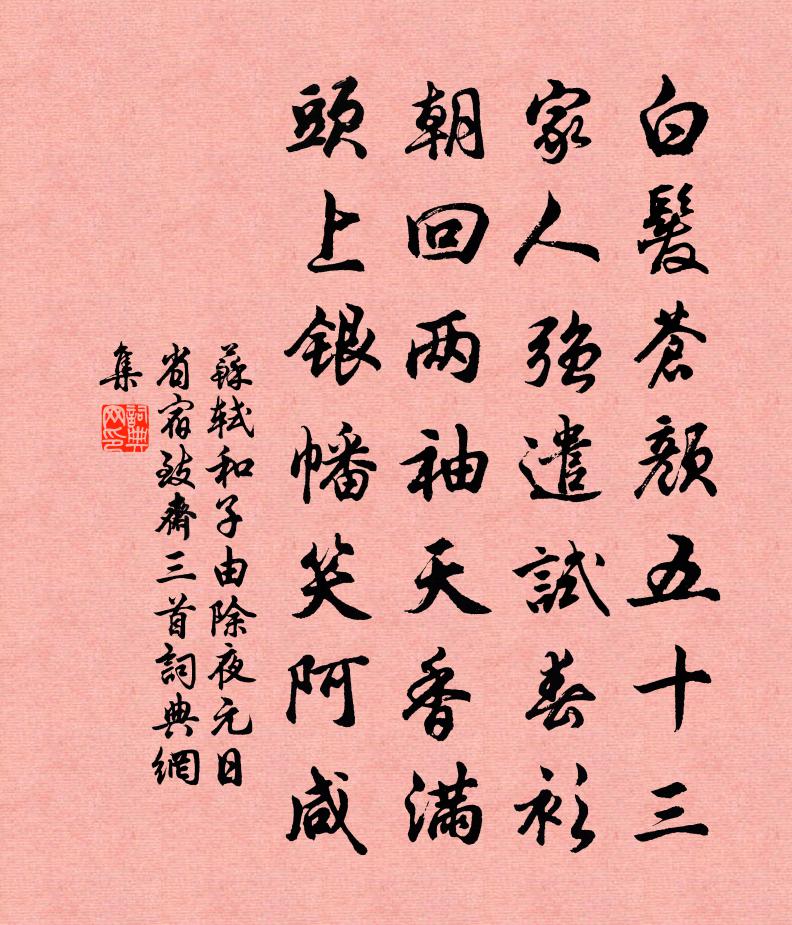 白髮蒼顏五十三
家人強遣試春衫
朝回两袖天香滿
頭上銀幡笑阿咸
蘇軾和子由除夜元日
省宿致齋三首詞典網
集
詞典
网印